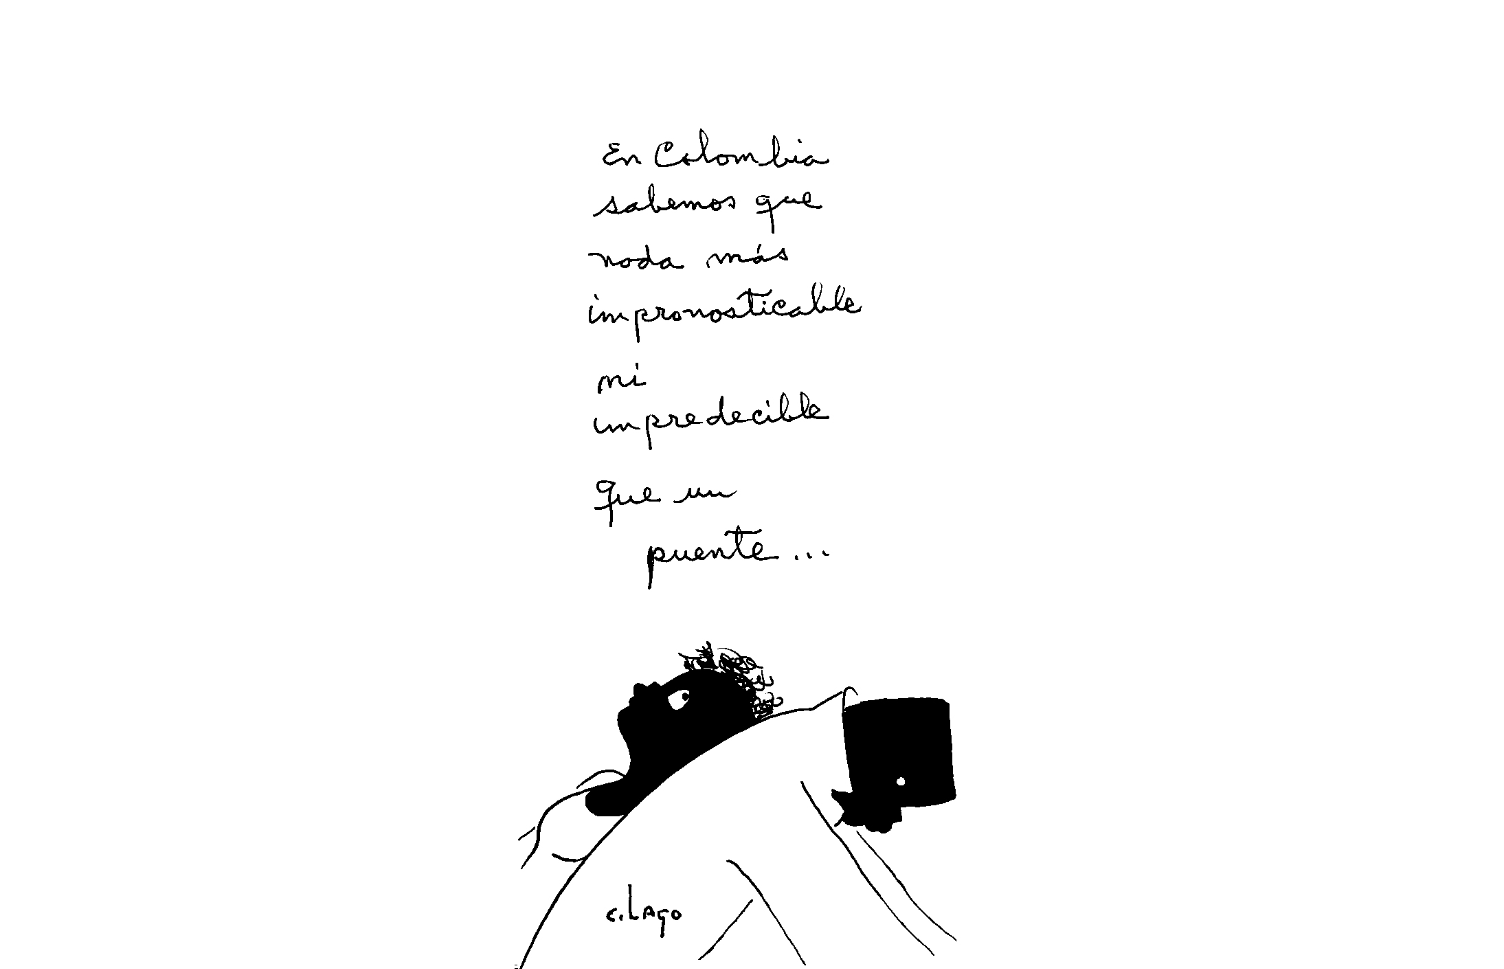 En Colombia
sabemos que
nada más
impronosticable
ni
impredecible
que un
puente...
c.Lago